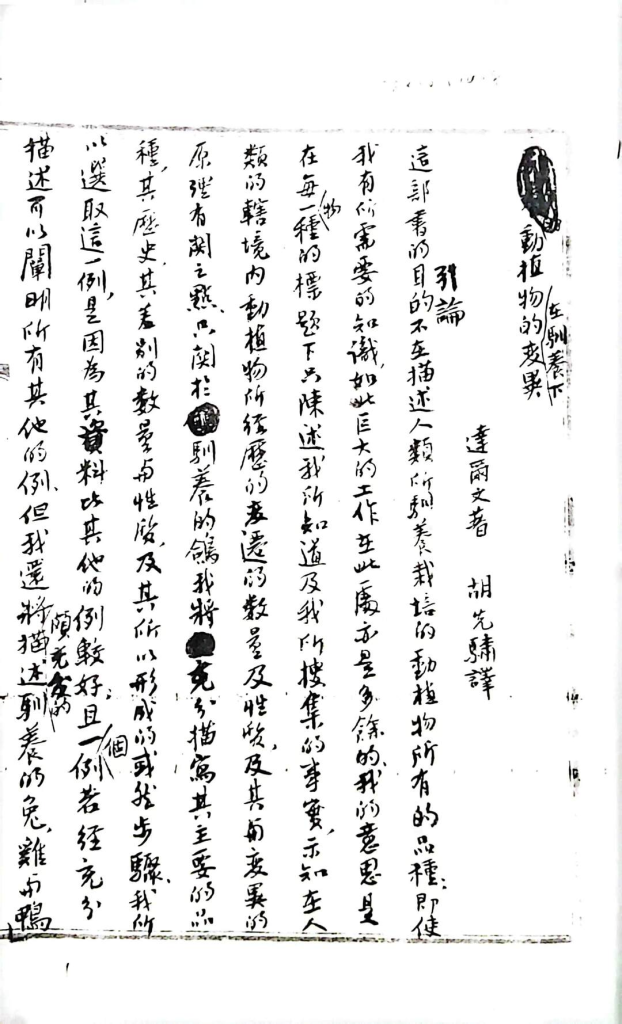 動植物在馴養下的变異
達爾文著 胡先驌譯
引論
這部書的目的不在描述人類所馴養栽培的動植物所有的品種;即使
我有所需要的知識,如此巨大的工作在此處亦是多餘的.我的意思是
在每一物種的標題下只陳述我所知道及我所搜集的事實,示知在人
類的轄境内動植物所经歷的变遷的数量及性質,及其与变異的
原理有関之點.只関於馴養的鴿我将充分描寫其主要的品
種,其歷史,其差别的数量与性质,及其所以形成的或然步驟.我所
以選取這一例,是因為其資料比其他的例較好,且一個例若经充分
描述可以闡明所有其他的例.但我還将頗充分的描述馴養的兔,雞与鴨
1